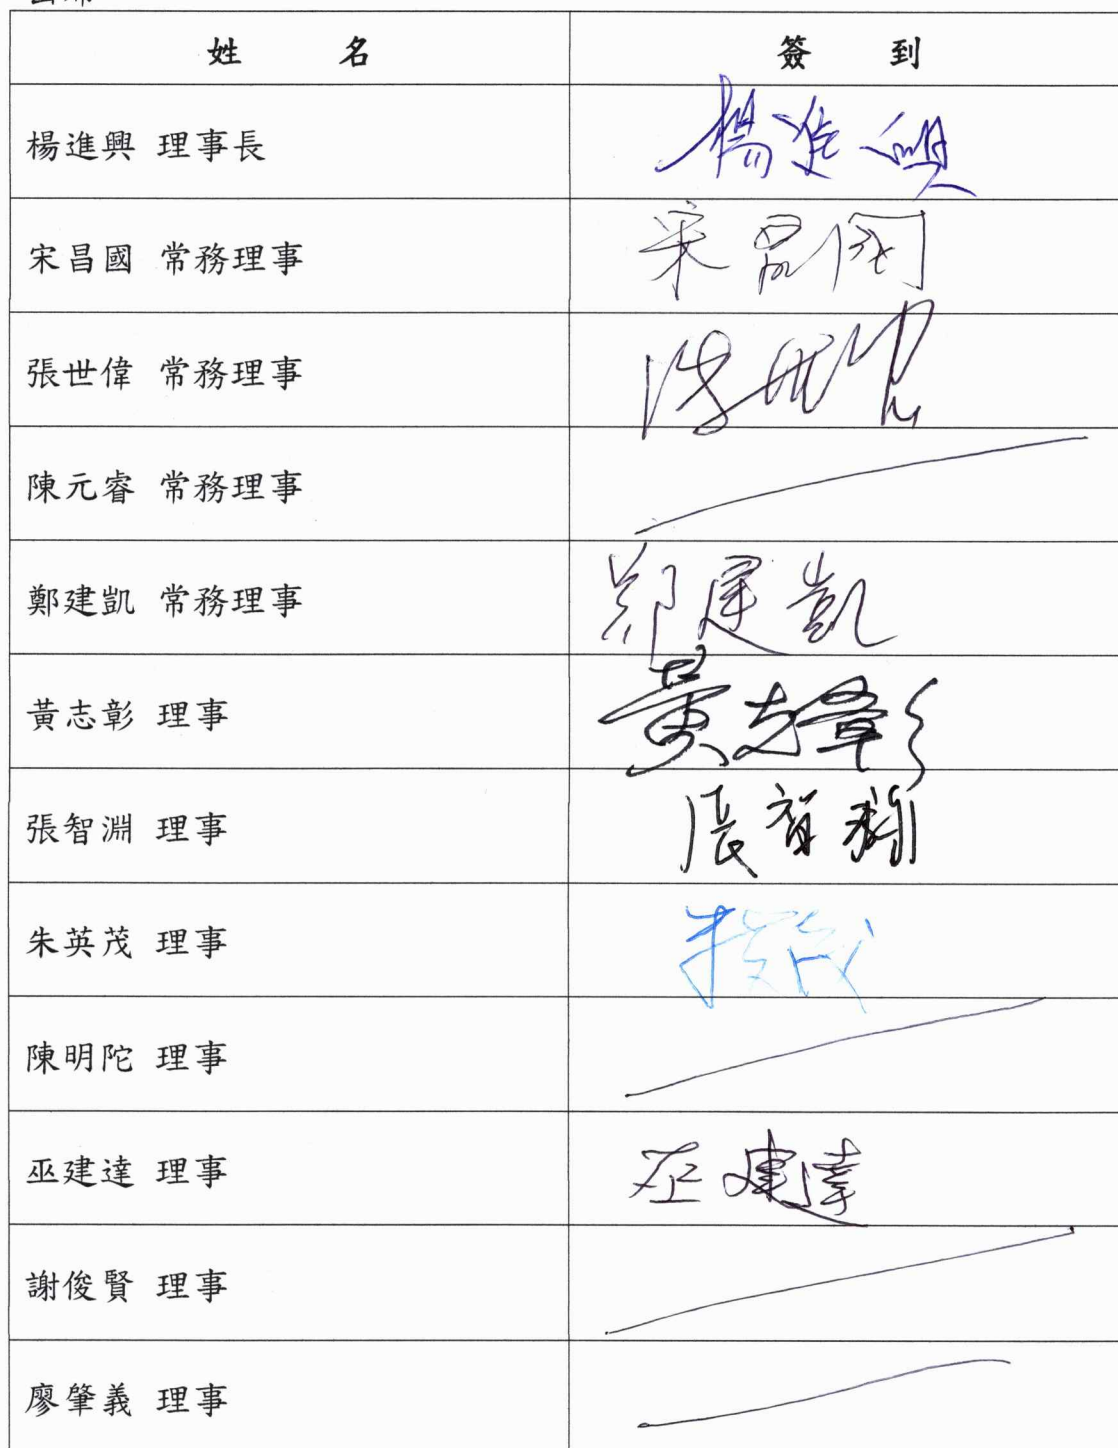 姓名 簽到
楊進興 理事長 楊進興
宋昌國 常務理事 宋昌國
張世偉 常務理事 張世偉
陳元睿 常務理事
鄭建凱 常務理事 鄭建凱
黃志彰 理事 黃志彰
張智淵 理事 張智淵
朱英茂 理事 朱英茂
陳明陀 理事
巫建達 理事 巫建達
謝俊賢 理事
廖肇義 理事